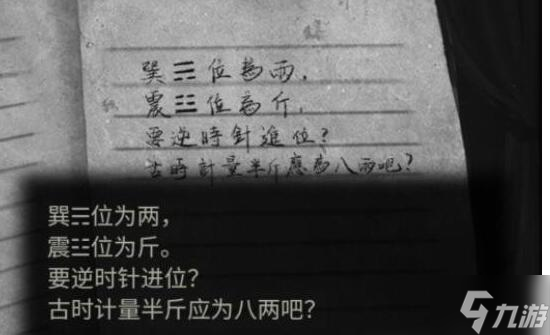 巽☴位為兩，
震☳位為斤，
要逆時針進位？
古時計量半斤應為八兩吧？
巽☴位为两，
震☳位为斤。
要逆时针进位？
古时计量半斤应为八两吧？
九游